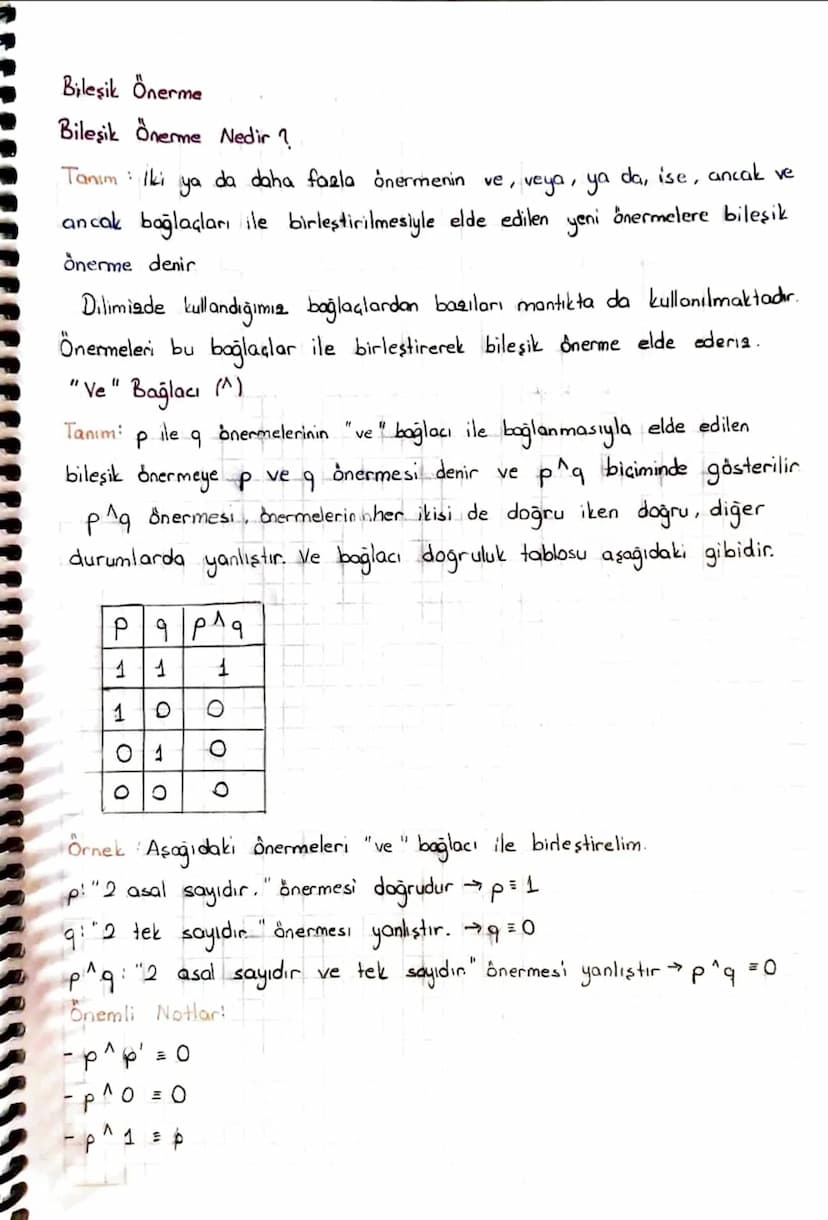 Bileşik Önerme
Bileşik Önerme Nedir ?
Tanım : İki ya da daha fazla önermenin ve, veya, ya da, ise, ancak ve
ancak bağlaçları ile birleştirilmesiyle elde edilen yeni önermelere bileşik
önerme denir
Dilimizde kullandığımız bağlaçlardan bazıları mantıkta da kullanılmaktadır.
Önermeleri bu bağlaçlar ile birleştirerek bileşik önerme elde ederiz.
"Ve" Bağlacı (^)
Tanım: p ile q önermelerinin "ve" bağlacı ile bağlanmasıyla elde edilen
bileşik önermeye p ve q önermesi denir ve p^q biçiminde gösterilir
p^q önermesi, önermelerin her ikisi de doğru iken doğru, diğer
durumlarda yanlıştır. Ve bağlacı doğruluk tablosu aşağıdaki gibidir.
p q p^q
1 1 1
1 0 0
0 1 0
0 0 0
Örnek : Aşağıdaki önermeleri "ve" bağlacı ile birleştirelim.
p: "2 asal sayıdır." önermesi doğrudur → p ≡ 1
q: "2 tek sayıdır." önermesi yanlıştır. → q ≡ 0
p^q : "2 asal sayıdır ve tek sayıdır." önermesi yanlıştır → p^q ≡ 0
Önemli Notlar:
- p ^ p' ≡ 0
- p ^ 0 ≡ 0
- p ^ 1 ≡ p